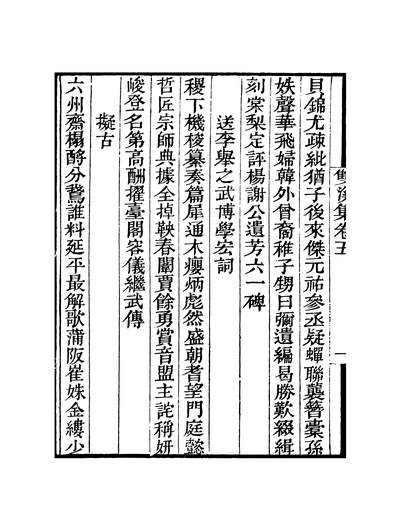 雙溪集卷五
一
貝錦尤疎紕猶子後來傑元祐參丞疑蟬聯襲簪橐孫
妷聲華飛婦韓外曾裔稚子甥日彌遺編曷勝歎綴緝
刻棠梨定評楊謝公遺芳六一碑
送李舉之武博學宏詞
稷下機梭纂奏篇犀通木癭炳彪然盛朝耆望門庭懿
哲匠宗師典據全掉鞅春闈賈餘勇賞音盟主詫稱妍
峻登名第高酬擢臺閣容儀繼武傳
擬古
六州齋榻醉分鵞誰料延平最解歌蒲阪崔姝金縷少